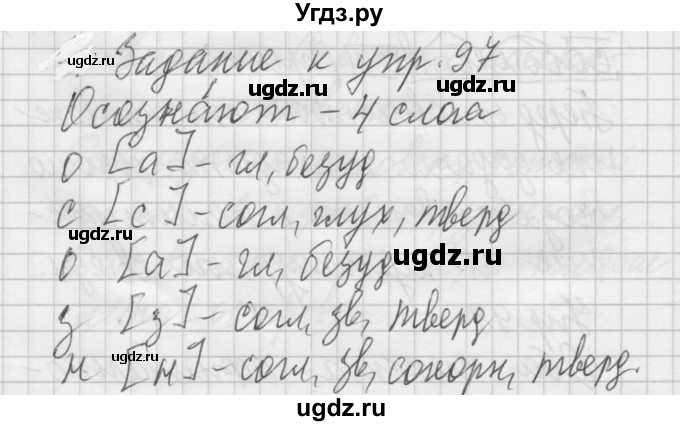 Угдз.ру
Задание к упр. 97
ugdz.ru ugdz.ru
Осозна́ют - 4 слога
ugdz.ru
о [а] - гл, безуд
с [с] - согл, глух, тверд
ugdz.ru
о [а] - гл, безуд
ugdz.ru
з [з] - согл, зв, тверд
ugdz.ru
н [н] - согл, зв, сонорн, тверд.
ugdz.ru
ugdz.ru